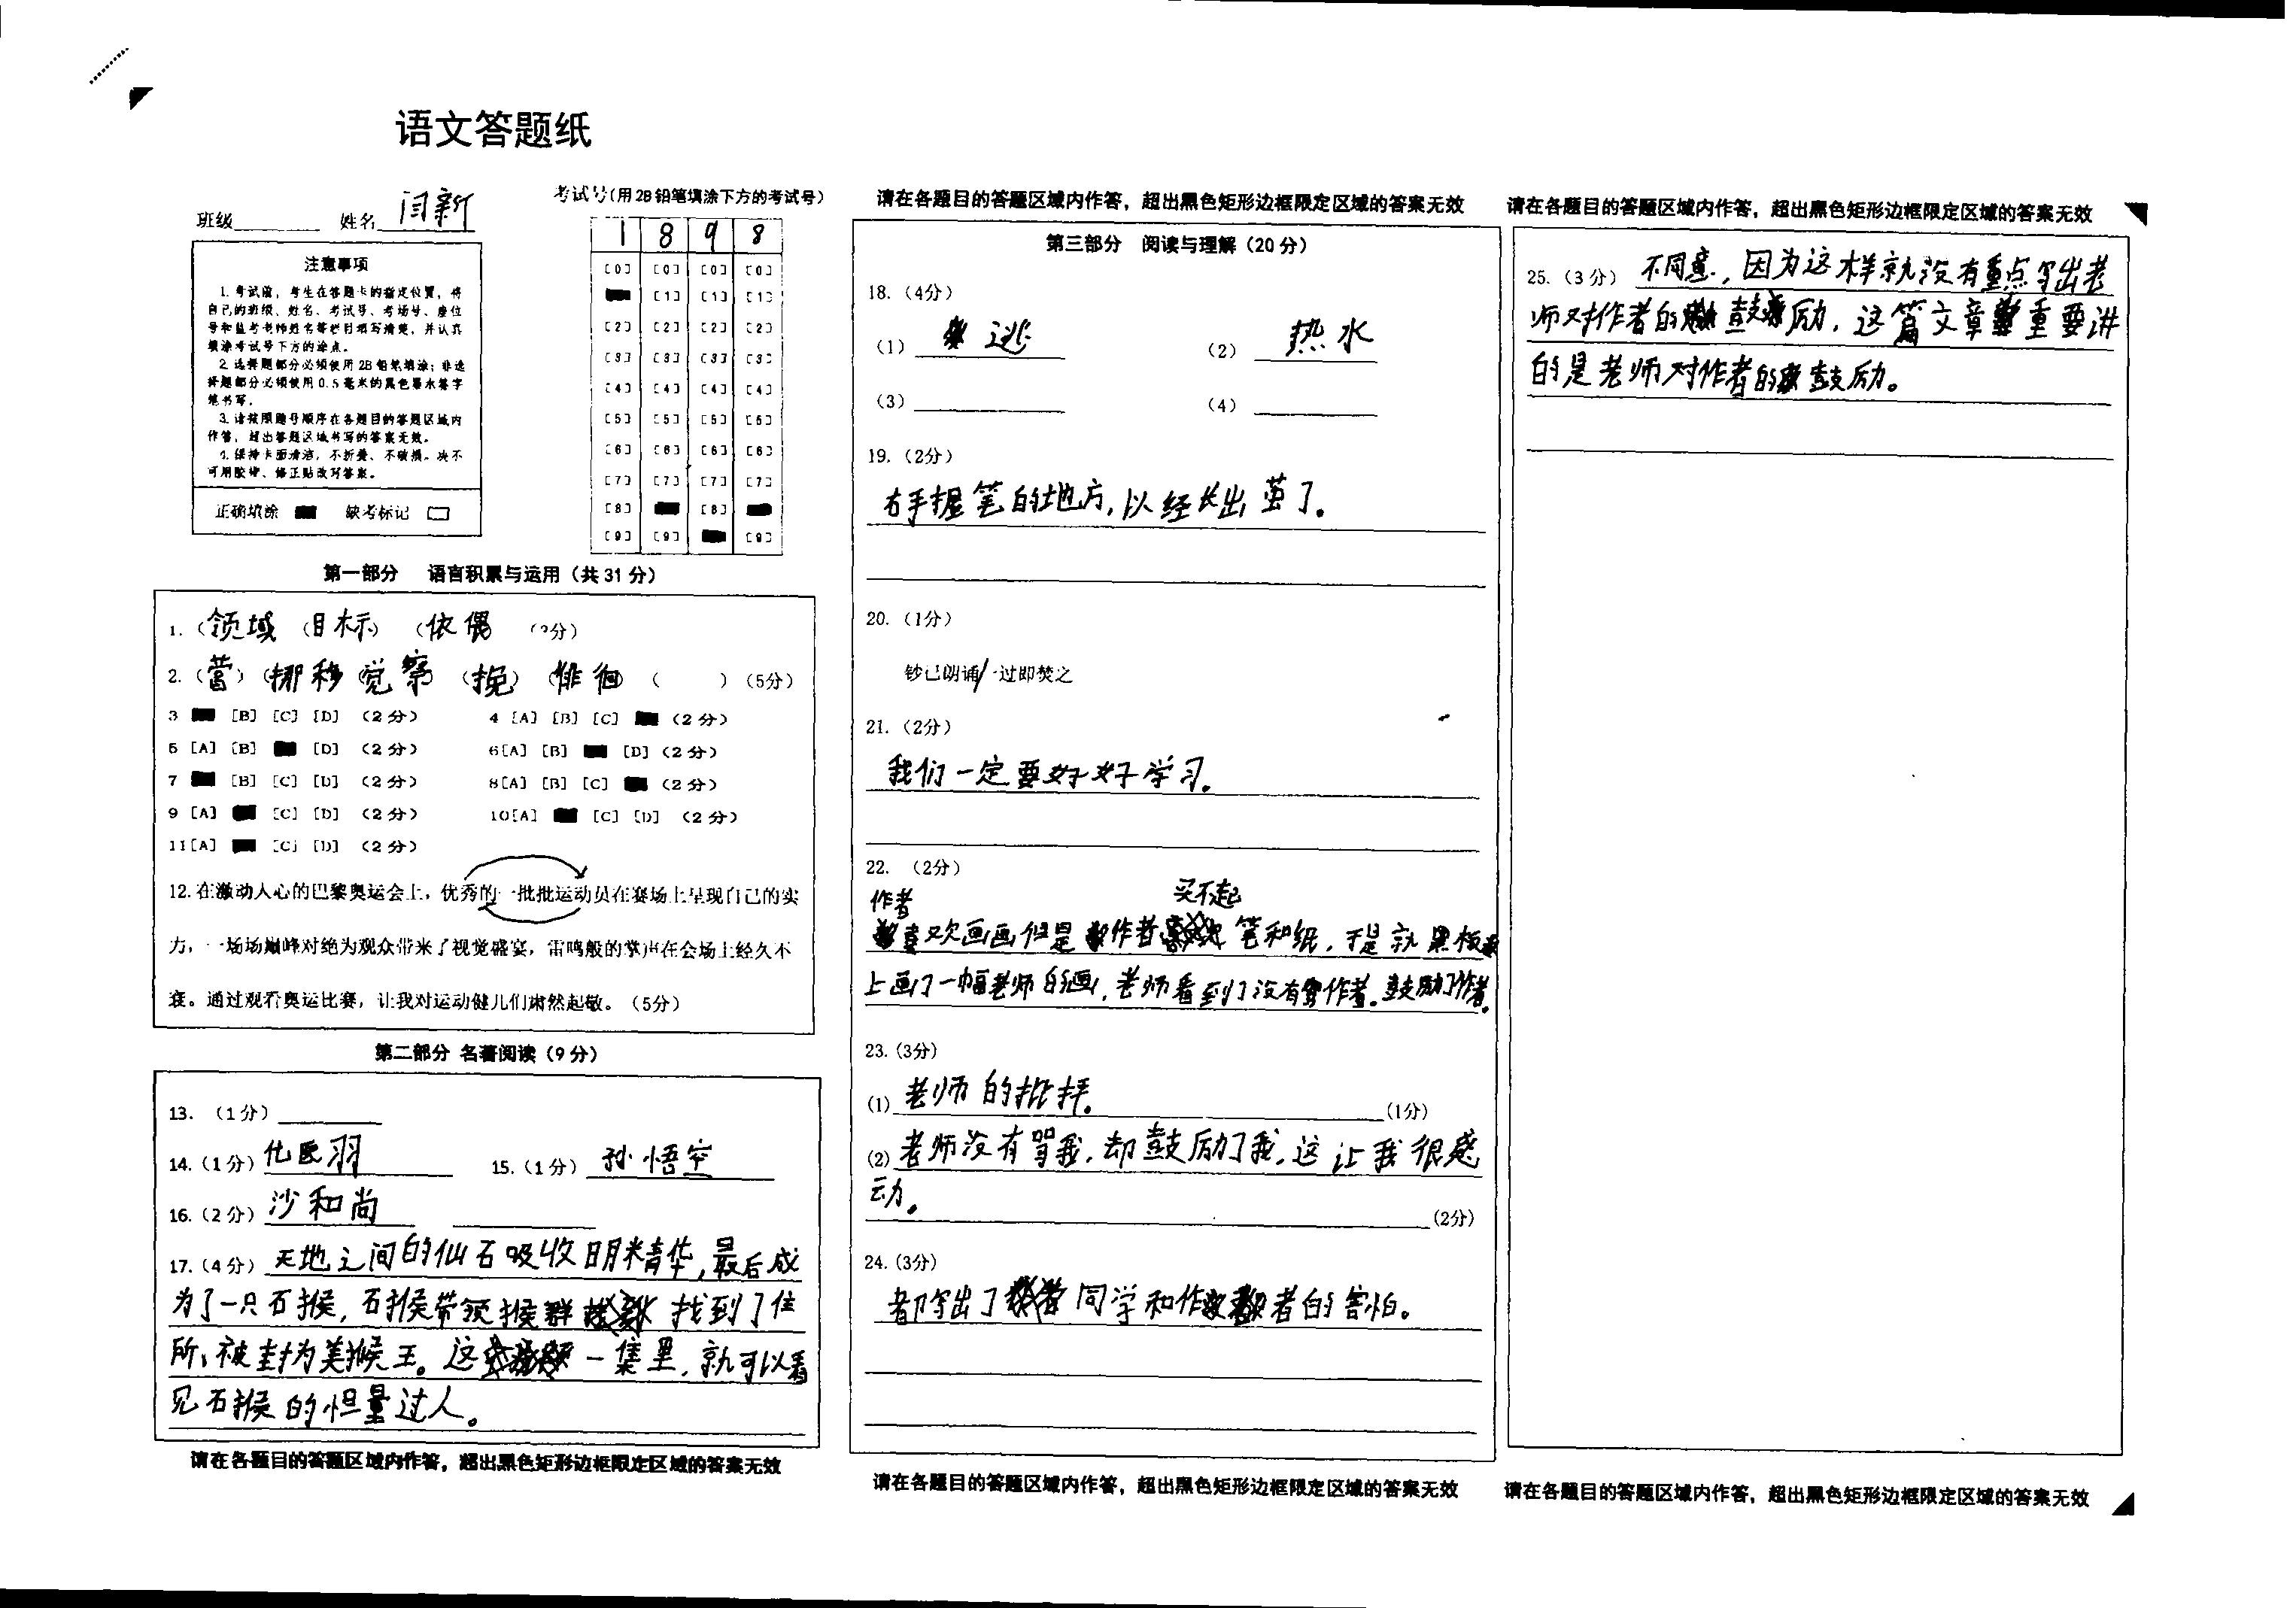 语文答题纸
班级 姓名 闫新
考试号(用2B铅笔填涂下方的考试号)
1 8 9 8
注意事项
1.考试前,考生在答题卡的指定位置,将
自己的班级、姓名、考试号、考场号、座位
号和监考老师姓名等栏目填写清楚,并认真
填涂考试号下方的涂点。
2.选择题部分必须使用2B铅笔填涂;非选
择题部分必须使用0.5毫米的黑色墨水签字
笔书写。
3.请按照题号顺序在各题目的答题区域内
作答,超出答题区域书写的答案无效。
4.保持卡面清洁,不折叠、不破损。决不
可用胶带、修正贴改写答案。
正确填涂 缺考标记
[0] [0] [0] [0]
[1] [1] [1]
[2] [2] [2] [2]
[3] [3] [3] [3]
[4] [4] [4] [4]
[5] [5] [5] [5]
[6] [6] [6] [6]
[7] [7] [7] [7]
[8] [8]
[9] [9] [9]
第一部分 语言积累与运用(共31分)
1.(领域 (目标) (依偎 (3分)
2.(营) (挪移 觉察 (挽) 徘徊 ( ) (5分)
3 [B] [C] [D] (2分) 4 [A] [B] [C] (2分)
5 [A] [B] [D] (2分) 6[A] [B] [D] (2分)
7 [B] [C] [D] (2分) 8[A] [B] [C] (2分)
9 [A] [C] [D] (2分) 10[A] [C] [D] (2分)
11[A] [C] [D] (2分)
12.在激动人心的巴黎奥运会上,优秀的一批批运动员在赛场上呈现自己的实
力,一场场巅峰对绝为观众带来了视觉盛宴,雷鸣般的掌声在会场上经久不
衰。通过观看奥运比赛,让我对运动健儿们肃然起敬。(5分)
第二部分 名著阅读(9分)
13. (1分)
14.(1分) 15.(1分) 孙悟空
16.(2分) 沙和尚
17.(4分) 天地之间的仙石吸收日月精华,最后成
为了一只石猴,石猴带领猴群 找到了住
所,被封为美猴王。这 一集里,就可以看
见石猴的胆量过人。
请在各题目的答题区域内作答,超出黑色矩形边框限定区域的答案无效
请在各题目的答题区域内作答,超出黑色矩形边框限定区域的答案无效
第三部分 阅读与理解(20分)
18.(4分)
(1) 逃 (2) 热水
(3) (4)
19.(2分)
右手握笔的地方,以经长出茧了。
20.(1分)
钞已朗诵/一过即焚之
21.(2分)
我们一定要好好学习。
22. (2分)
作者 买不起
喜欢画画但是 作者 笔和纸,于是就黑板
上画了一幅老师的画,老师看到了没有 作者。鼓励了作者。
23.(3分)
(1) 老师的批抨。 (1分)
(2) 老师没有骂我,却鼓励了我,这让我很感
动。 (2分)
24.(3分)
都写出了 同学和作 者的害怕。
请在各题目的答题区域内作答,超出黑色矩形边框限定区域的答案无效
请在各题目的答题区域内作答,超出黑色矩形边框限定区域的答案无效
25.(3分) 不同意,因为这样就没有重点写出老
师对作者的 鼓励,这篇文章 重要讲
的是老师对作者的 鼓励。
请在各题目的答题区域内作答,超出黑色矩形边框限定区域的答案无效